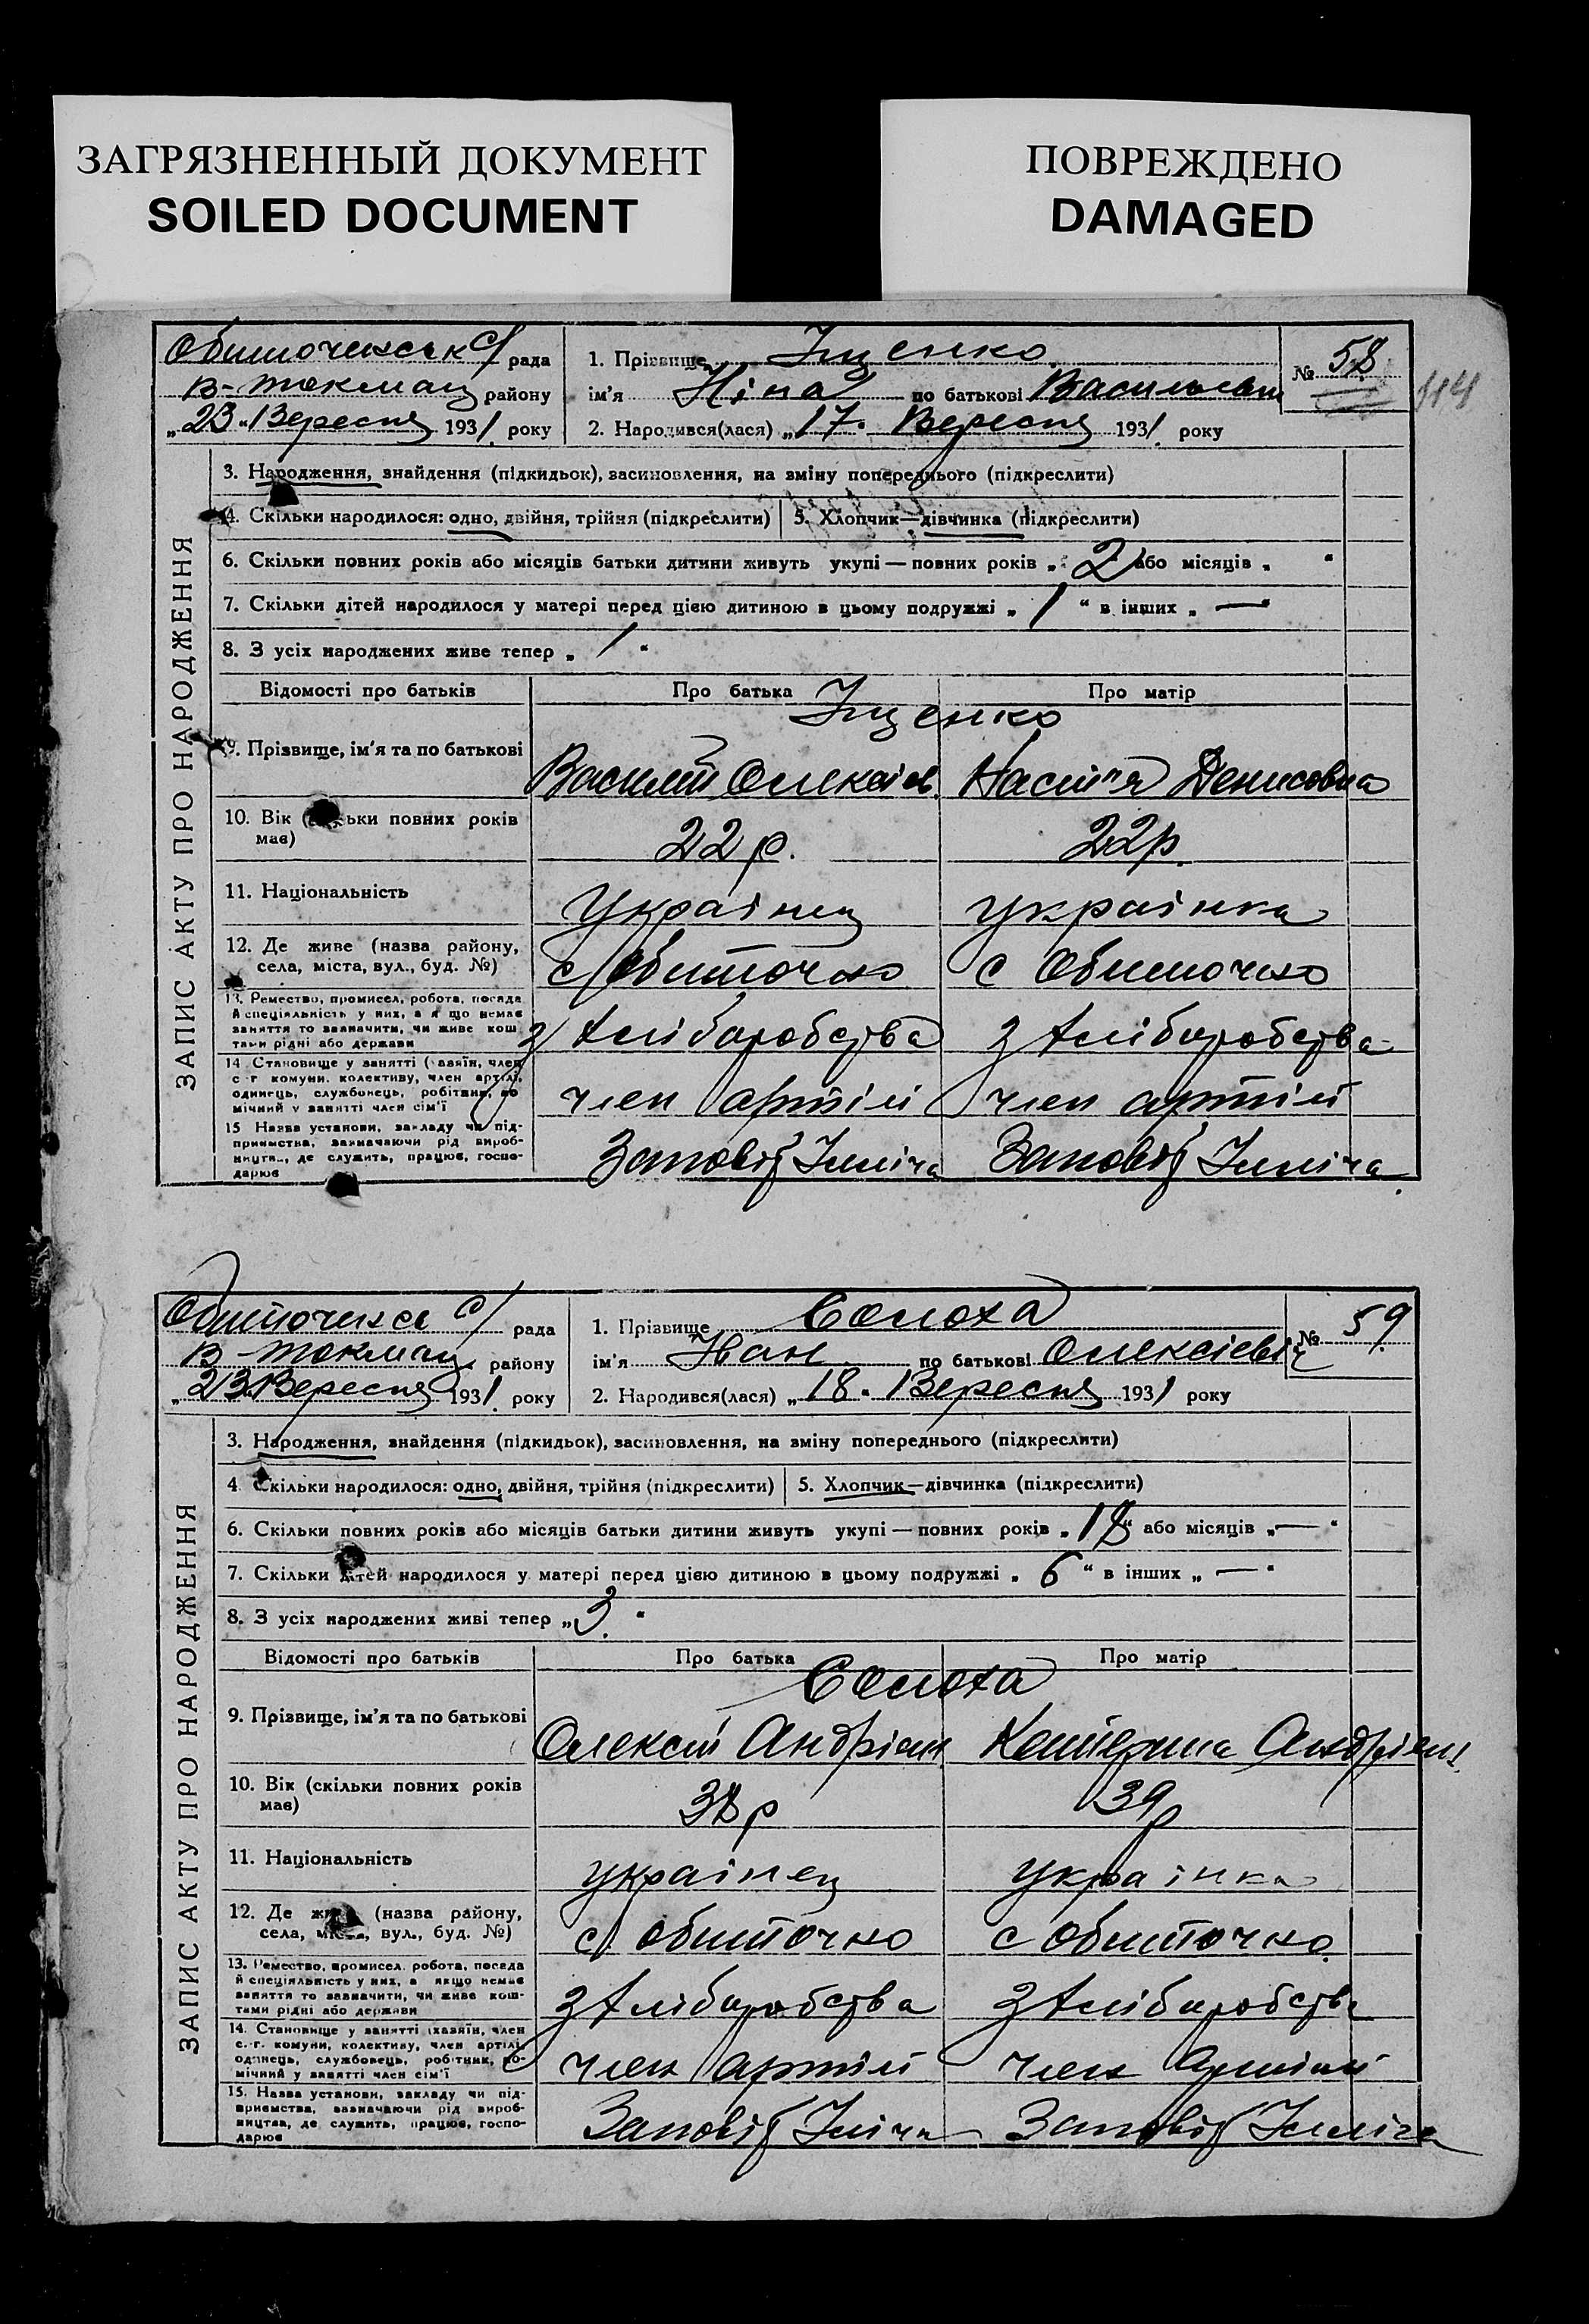 ЗАГРЯЗНЕННЫЙ ДОКУМЕНТ
SOILED DOCUMENT
ПОВРЕЖДЕНО
DAMAGED
Обиточенськ с/ рада
В-Токмац району
„23“ Вересня 1931. року
1. Прізвище Іщенко
ім'я Ніна по батькові Васильевн
2. Народився(лася) „17. Вересня 1931. року
№ 58
114
ЗАПИС АКТУ ПРО НАРОДЖЕННЯ
3. Народження, знайдення (підкидьок), засиновлення, на зміну попереднього (підкреслити)
4. Скільки народилося: одно, двійня, трійня (підкреслити) 5. Хлопчик—дівчинка (підкреслити)
6. Скільки повних років або місяців батьки дитини живуть укупі — повних років „ 2 або місяців „ “
7. Скільки дітей народилося у матері перед цією дитиною в цьому подружжі „ 1 “ в інших „ — “
8. З усіх народжених живе тепер „ 1 “
Відомості про батьків Про батька Про матір
Іщенко
9. Прізвище, ім'я та по батькові Василій Олексієв. Настя Денисовна
10. Вік ( ьки повних років має) 22 р. 22р.
11. Національність Українец українка
12. Де живе (назва району, села, міста, вул., буд. №) с Обиточно с Обиточно
13. Ремество, промисел, робота, посада
й спеціяльність у них, а я що немає
заняття то зазначити, чи живе кош
тами рідні або держави
з хліборобства з хліборобства
14 Становище у занятті (хазяїн, член
с-г комуни, колективу, член артілі,
одинець, службовець, робітник, по
мічний у занятті член сім'ї
член артілі член артілі
15 Назва установи, закладу чи під-
приємства, зазначаючи рід вироб-
ництв., де служить, працює, госпо-
дарює
Заповіт Ілліча Заповіт Ілліча.
Обиточнсе с/ рада
В-Токмац. району
„23 Вересня 1931. року
1. Прізвище Солоха
ім'я Іван по батькові Олексієвіч
2. Народився(лася) „18. Вересня 1931 року
№ 59.
ЗАПИС АКТУ ПРО НАРОДЖЕННЯ
3. Народження, знайдення (підкидьок), засиновлення, на зміну попереднього (підкреслити)
4. Скільки народилося: одно, двійня, трійня (підкреслити) 5. Хлопчик—дівчинка (підкреслити)
6. Скільки повних років або місяців батьки дитини живуть укупі — повних років „ 18“ або місяців „ — “
7. Скільки дітей народилося у матері перед цією дитиною в цьому подружжі „ 6 “ в інших „ — “
8. З усіх народжених живі тепер „ 3. “
Відомості про батьків Про батька Про матір
Солоха
9. Прізвище, ім'я та по батькові Олексій Андріев Катерина Андріев.
10. Вік (скільки повних років має) 38р 39р
11. Національність українец українка
12. Де живе (назва району, села, міста, вул., буд. №) с Обиточно с Обиточно
13. Ремество, промисел, робота, посада
й спеціяльність у них, а якщо немає
заняття то зазначити, чи живе кош-
тами рідні або держави
з хліборобства з хліборобства
14. Становище у занятті (хазяїн, член
с.-г. комуни, колективу, член артілі,
одинець, службовець, робітник, по-
мічний у занятті член сім'ї
член артілі член артілі
15. Назва установи, закладу чи під-
приємства, зазначаючи рід вироб-
ництва, де служить, працює, госпо-
дарює
Заповіт Іліча Заповіт Ілліча